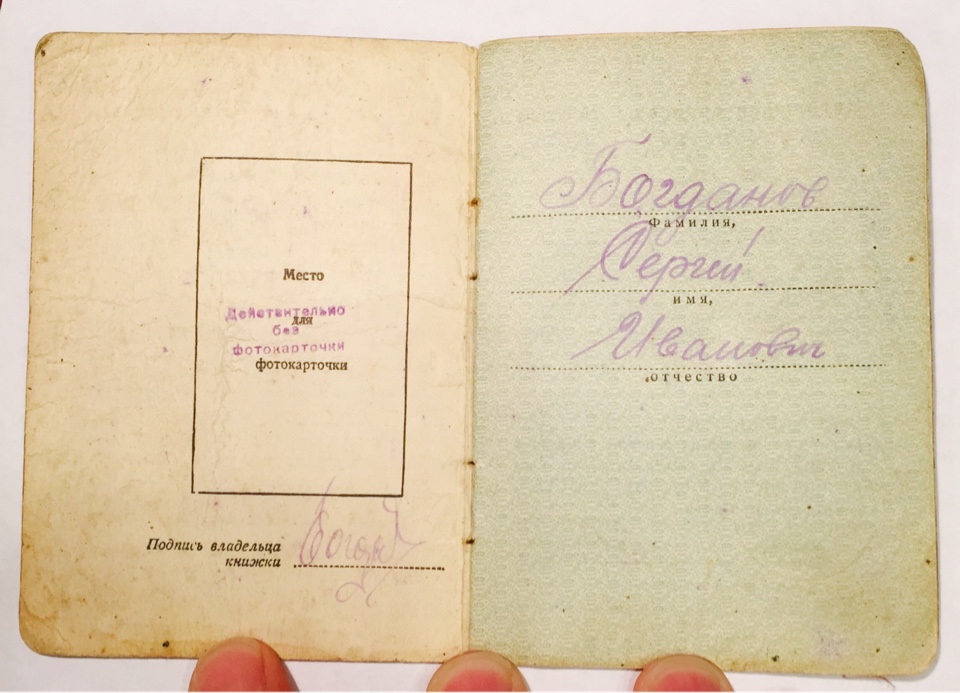 Место
Действительно
для
без
фотокарточки
фотокарточки
Подпись владельца
книжки
Богданов
фамилия,
Сергей
имя,
Иванович
отчество